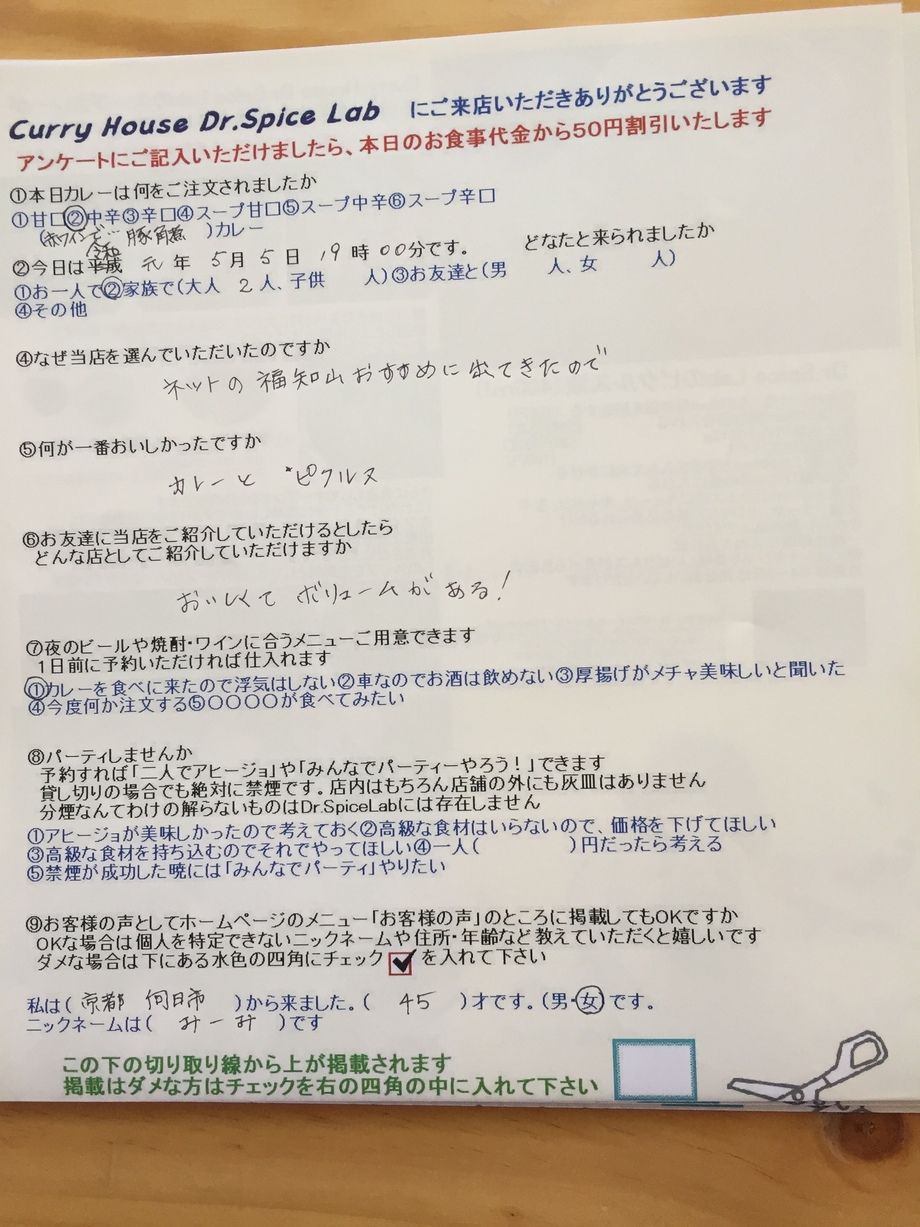 Curry House Dr.Spice Lab にご来店いただきありがとうございます
アンケートにご記入いただけましたら、本日のお食事代金から50円割引いたします
①本日カレーは何をご注文されましたか
①甘口②中辛③辛口④スープ甘口⑤スープ中辛⑥スープ辛口
(赤ワインで… 豚角煮 )カレー
令和
②今日は平成 元 年 5月 5日 19時 00分です。 どなたと来られましたか
①お一人で②家族で(大人 2 人、子供 人)③お友達と(男 人、女 人)
④その他
④なぜ当店を選んでいただいたのですか
ネットの福知山おすすめに出てきたので
⑤何が一番おいしかったですか
カレーと ピクルス
⑥お友達に当店をご紹介していただけるとしたら
どんな店としてご紹介していただけますか
おいしくて ボリュームがある!
⑦夜のビールや焼酎・ワインに合うメニューご用意できます
1日前に予約いただければ仕入れます
①カレーを食べに来たので浮気はしない②車なのでお酒は飲めない③厚揚げがメチャ美味しいと聞いた
④今度何か注文する⑤〇〇〇〇が食べてみたい
⑧パーティしませんか
予約すれば「二人でアヒージョ」や「みんなでパーティーやろう！」できます
貸し切りの場合でも絶対に禁煙です。店内はもちろん店舗の外にも灰皿はありません
分煙なんてわけの解らないものはDr.SpiceLabには存在しません
①アヒージョが美味しかったので考えておく②高級な食材はいらないので、価格を下げてほしい
③高級な食材を持ち込むのでそれでやってほしい④一人( )円だったら考える
⑤禁煙が成功した暁には「みんなでパーティ」やりたい
⑨お客様の声としてホームページのメニュー「お客様の声」のところに掲載してもOKですか
OKな場合は個人を特定できないニックネームや住所・年齢など教えていただくと嬉しいです
ダメな場合は下にある水色の四角にチェック を入れて下さい
私は( 京都 向日市 )から来ました。( 45 )才です。(男・女)です。
ニックネームは( みーみ )です
この下の切り取り線から上が掲載されます
掲載はダメな方はチェックを右の四角の中に入れて下さい